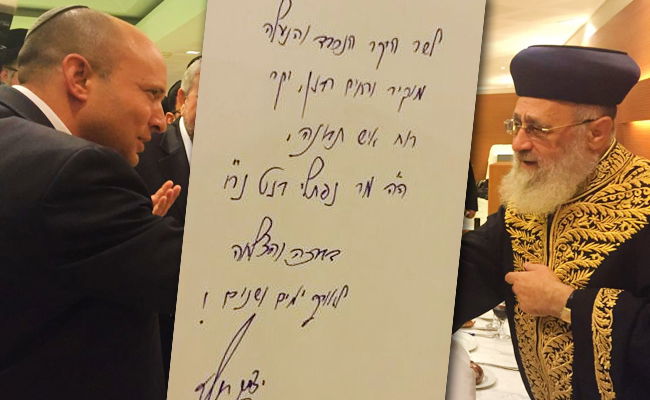 לשר היקר הנכבד והנעלה
מוקיר ורחים רבנן, יקר
רוח איש תבונה,
ה"ה מר נפתלי בנט נר"ו
בברכה והצלחה
לאורך ימים ושנים !
יצחק יוסף